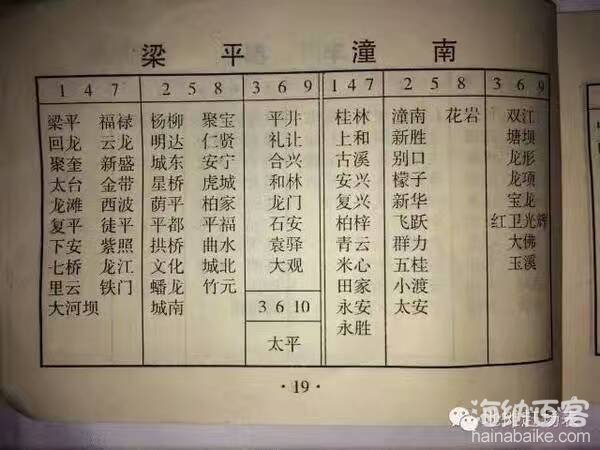 梁 平 潼 南
1 4 7 2 5 8 3 6 9 1 4 7 2 5 8 3 6 9
梁平 福禄 杨柳 聚宝 平井 桂林 潼南 花岩 双江
回龙 云龙 明达 仁贤 礼让 上和 新胜 塘坝
聚奎 新盛 城东 安宁 合兴 古溪 别口 龙形
太台 金带 星桥 虎城 和林 安兴 檬子 龙项
龙滩 西波 荫平 柏家 龙门 复兴 新华 宝龙
复平 徒平 平都 平福 石安 柏梓 飞跃 红卫光辉
下安 紫照 拱桥 曲水 袁驿 青云 群力 大佛
七桥 龙江 文化 城北 大观 米心 五桂 玉溪
里云 铁门 蟠龙 竹元 田家 小渡
大河坝 城南 3 6 10 永安 太安
太平 永胜
·19·
海纳百客
hainabaike.com